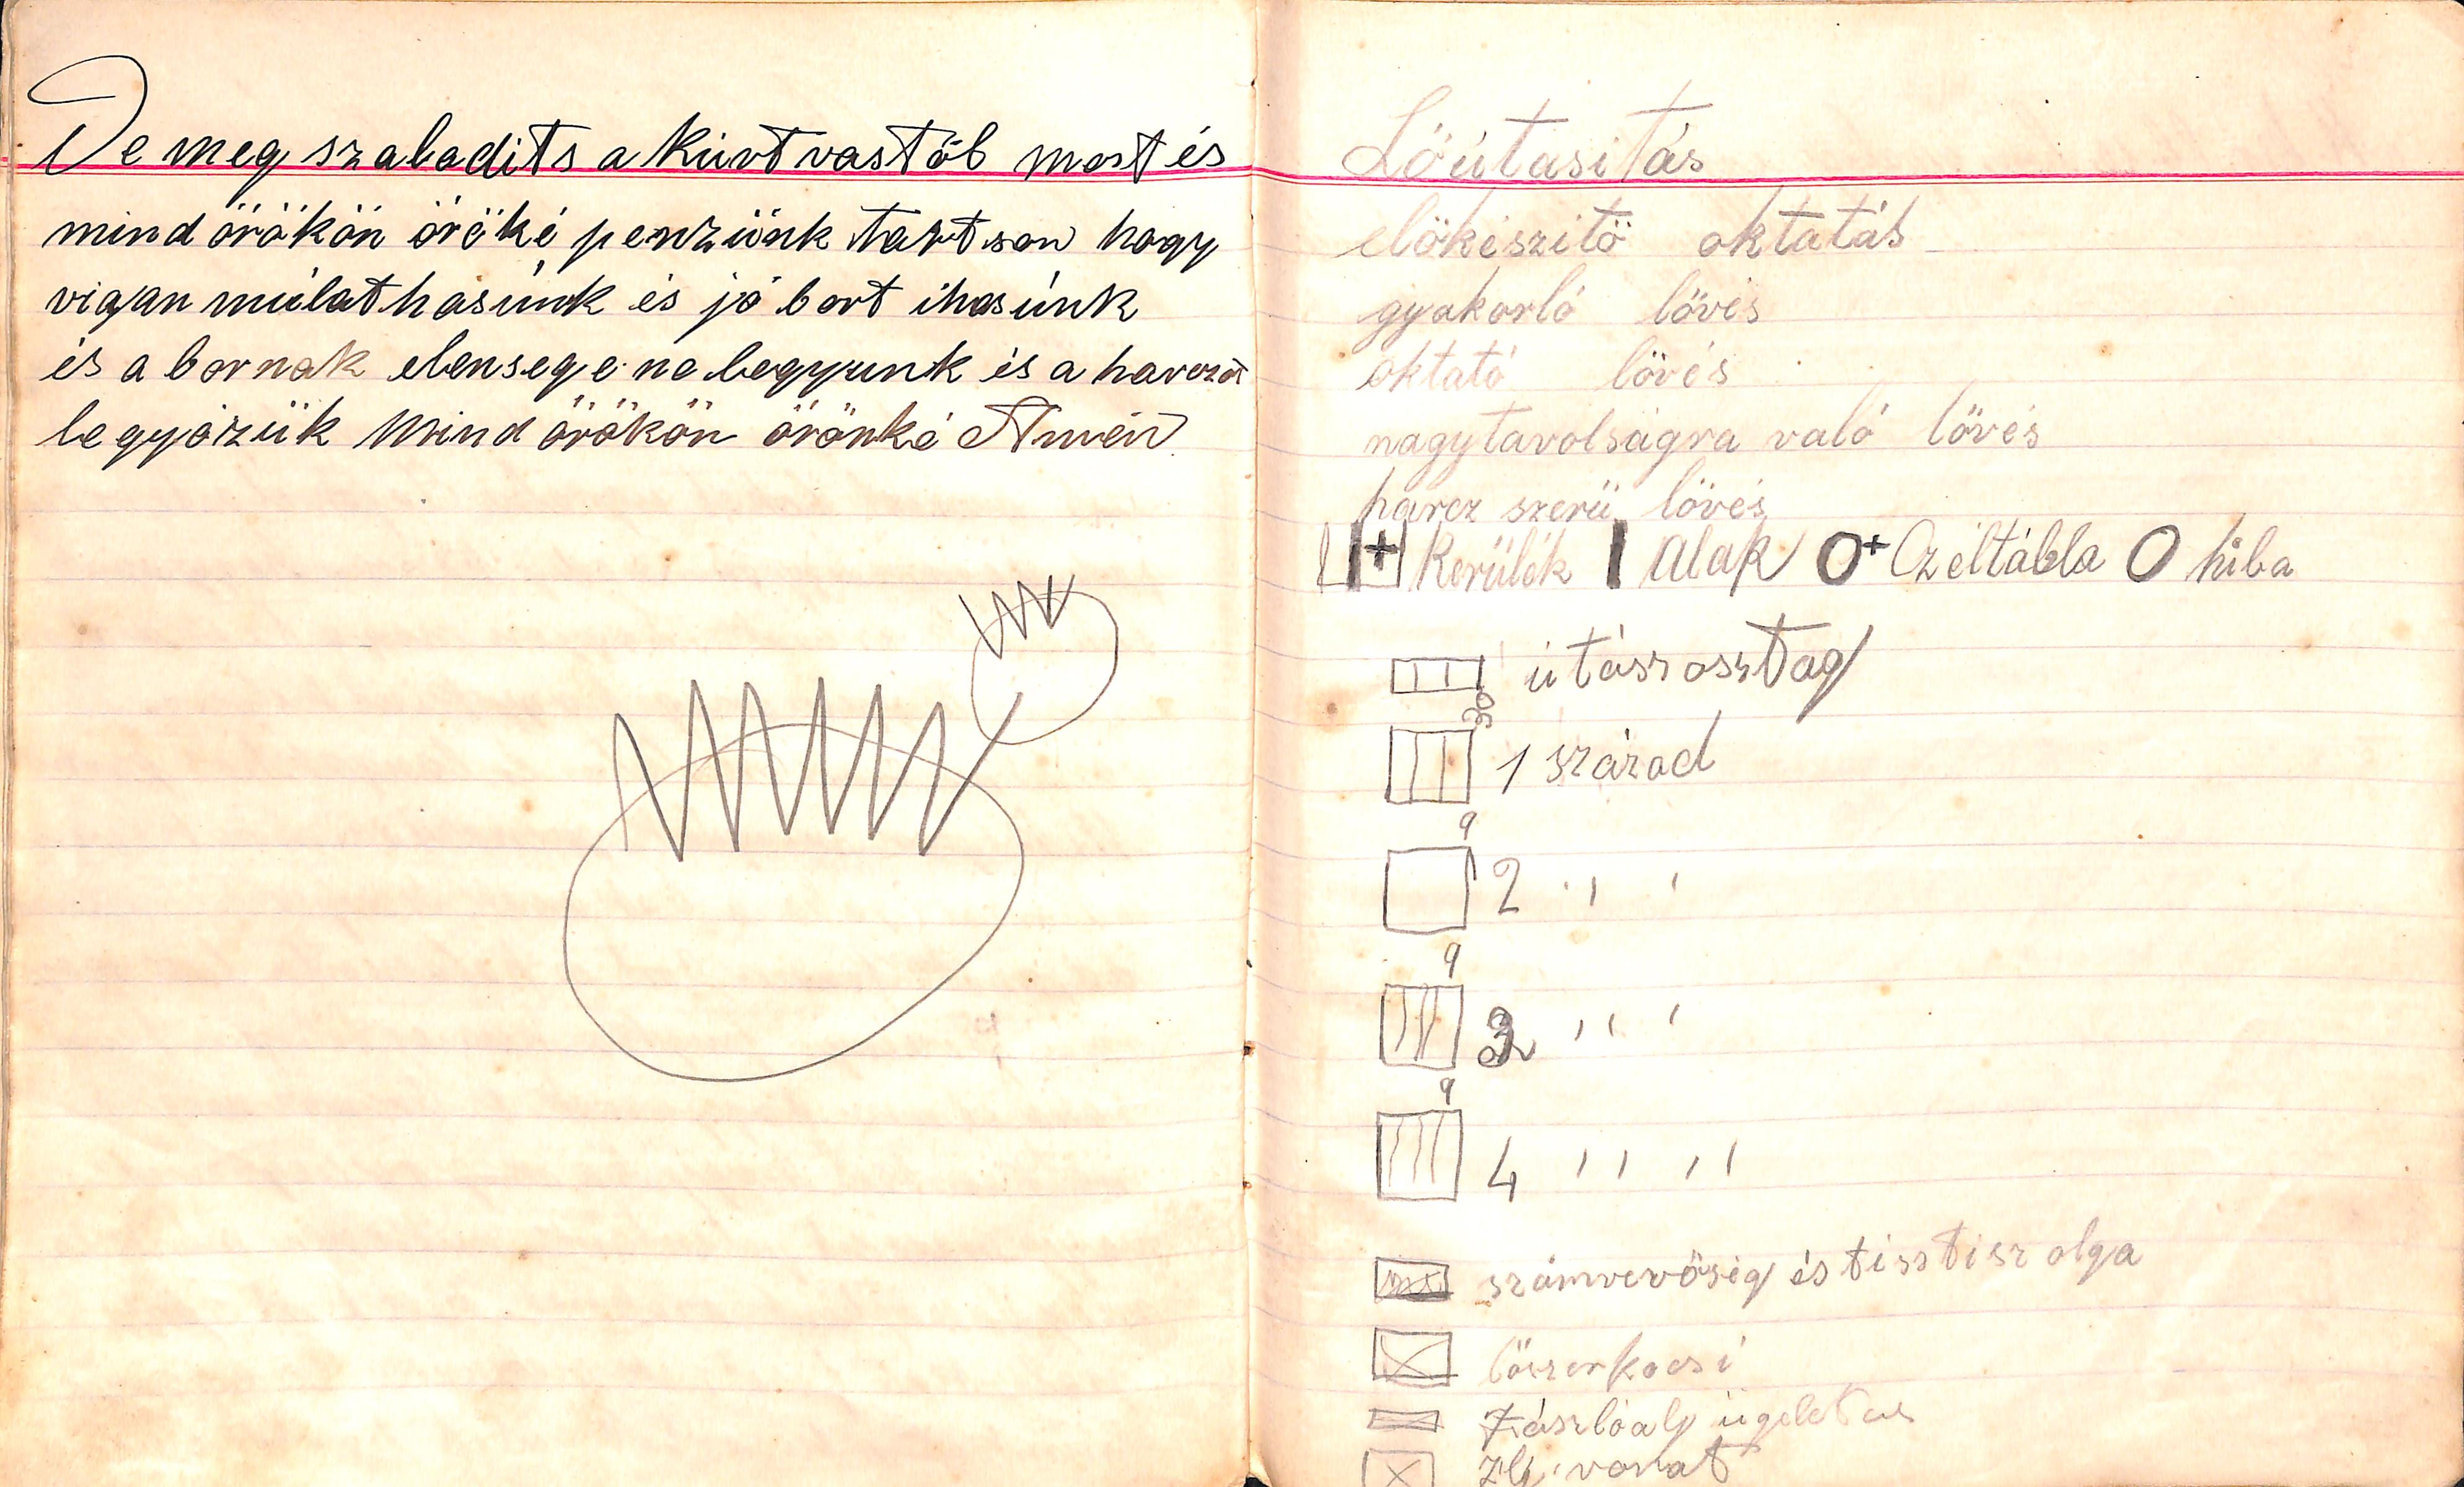 De meg szabadits a kúrt vastól most és
mind örökön öröké penzünk tartson hogy
vigan múlathasúnk és jó bort ihasúnk
és a bornak elensege ne legyunk és a harczot
legyözük mind örökön örönké Ámén
Lőútasitás
elökészitö oktatás
gyakorló lövés
oktató lövés
nagytavolságra való lövés
harcz szerü lövés
Kerülék Alak Czéltábla hiba
útász osztag
30
1 század
9
2 " "
9
3 " "
9
4 " "
számvevöség és tiszt isz olga
löszerkocsi
Zászlóalj ügeletes
Zlj. vonat